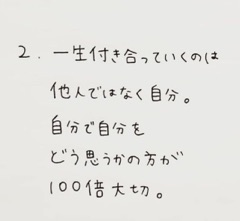 2. 一生付き合っていくのは
他人ではなく自分。
自分で自分を
どう思うかの方が
100倍大切。